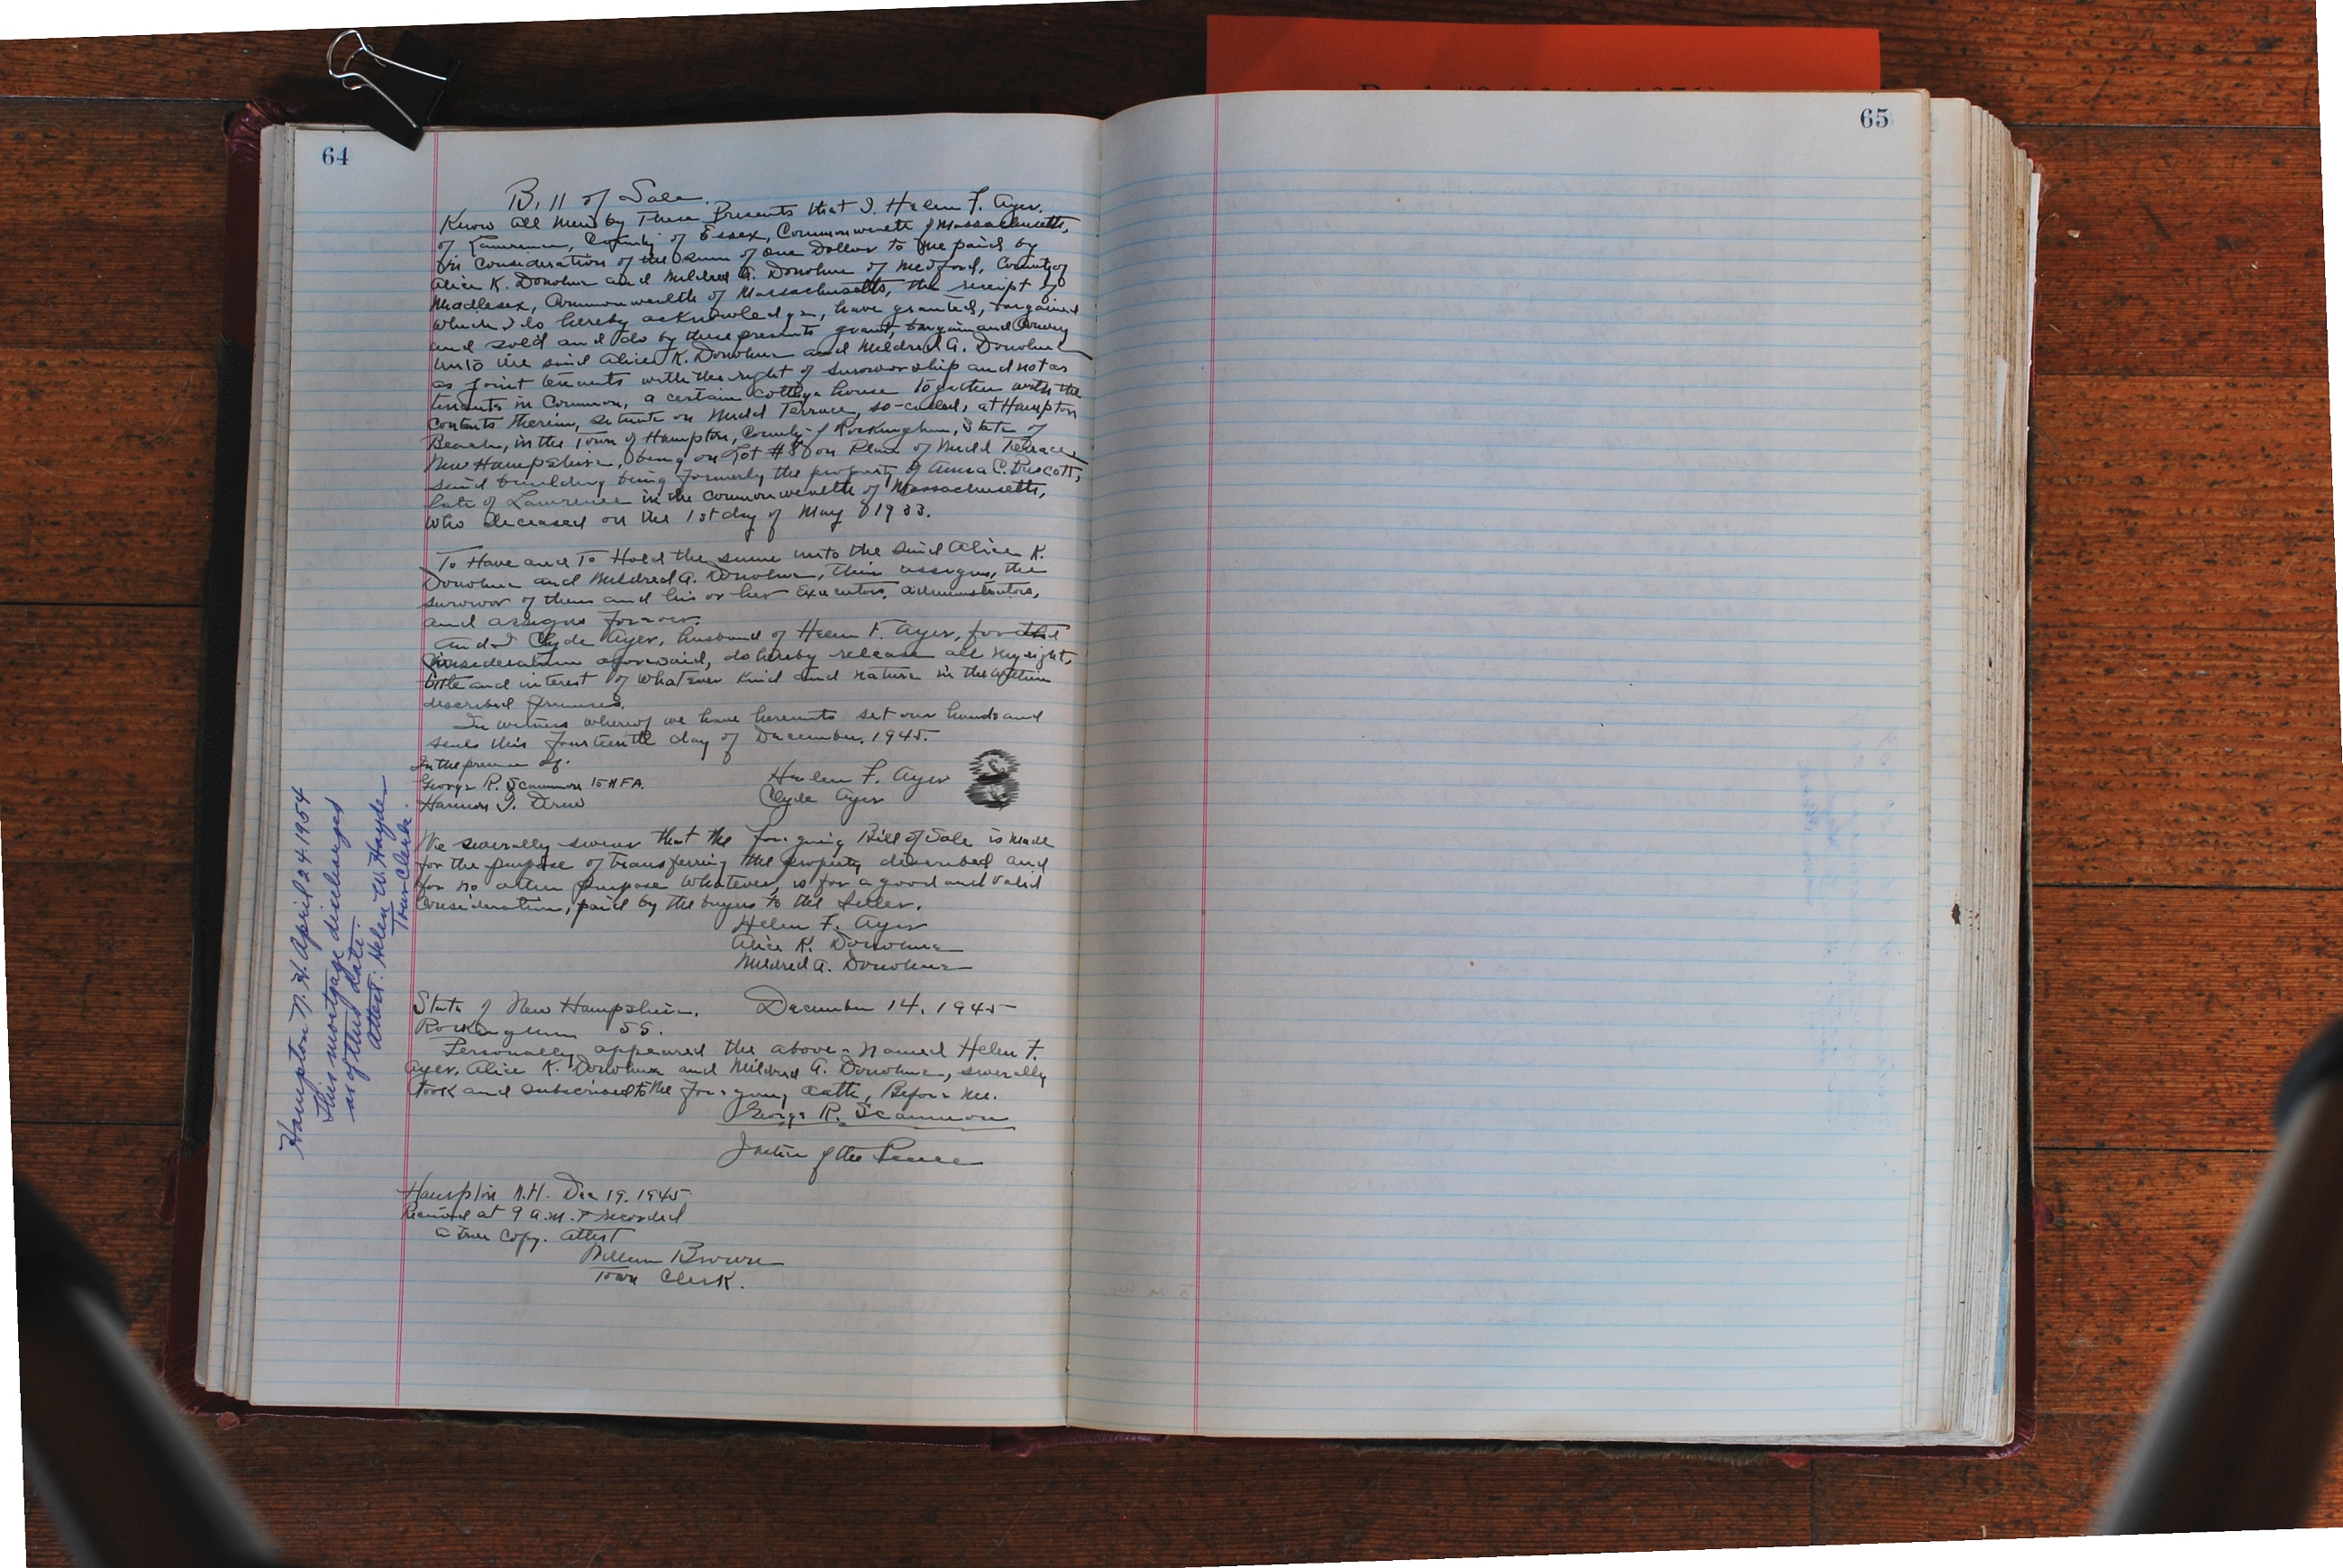 64
Bill of Sale.
Know all Men by These Presents that I, Helen F. Ayer,
of Lawrence, County of Essex, Commonwealth of Massachusetts,
in consideration of the sum of One Dollar to me paid by
Alice K. Donohue and Mildred A. Donohue of Medford, County of
Middlesex, Commonwealth of Massachusetts, the receipt of
which I do hereby acknowledge, have granted, bargained
and sold and do by these presents grant, bargain and convey
unto the said Alice K. Donohue and Mildred A. Donohue
as joint tenants with the right of survivorship and not as
tenants in common, a certain cottage house together with the
contents therein, situate on Mudd Terrace, so-called, at Hampton
Beach, in the Town of Hampton, County of Rockingham, State of
New Hampshire, being on Lot #8 on Plan of Mudd Terrace,
said building being formerly the property of Anna C. Driscoll,
late of Lawrence in the Commonwealth of Massachusetts,
who deceased on the 1st day of May 1933.
To Have and To Hold the same unto the said Alice K.
Donohue and Mildred A. Donohue, their assigns, the
survivor of them and his or her executors, administrators,
and assigns forever.
And I Clyde Ayer, husband of Helen F. Ayer, for the
consideration aforesaid, do hereby release all my right,
title and interest of whatever kind and nature in the within
described premises.
In witness whereof we have hereunto set our hands and
seals this fourteenth day of December, 1945.
In the presence of:
George R. Scammon to HFA. Helen F. Ayer
Clyde Ayer
We severally swear that the foregoing Bill of Sale is made
for the purpose of transferring the property described and
for no other purpose whatever, is for a good and valid
consideration, paid by the buyers to the seller.
Helen F. Ayer
Alice K. Donohue
Mildred A. Donohue
State of New Hampshire. December 14, 1945
Rockingham SS.
Personally appeared the above-named Helen F.
Ayer, Alice K. Donohue and Mildred A. Donohue, severally
took and subscribed to the foregoing oath, Before me.
George R. Scammon
Justice of the Peace
Hampton N.H. Dec 19, 1945
Received at 9 A.M. & recorded
a true copy. attest
William Brown
Town Clerk.
Hampton N.H. April 24 1954
This mortgage discharged
as of this date.
Attest: Helen W. Hayden
Town Clerk.
65